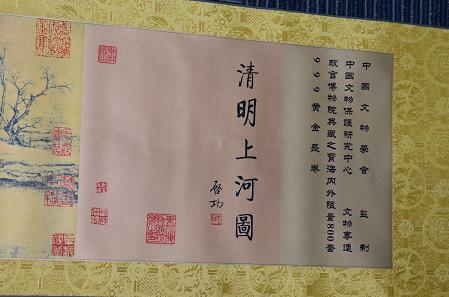 中國文物學會 監制
中國文物保護研究中心 文物專造
故宮博物院典藏之寶海內外限量800套
999黄金長卷
清明上河圖
启功